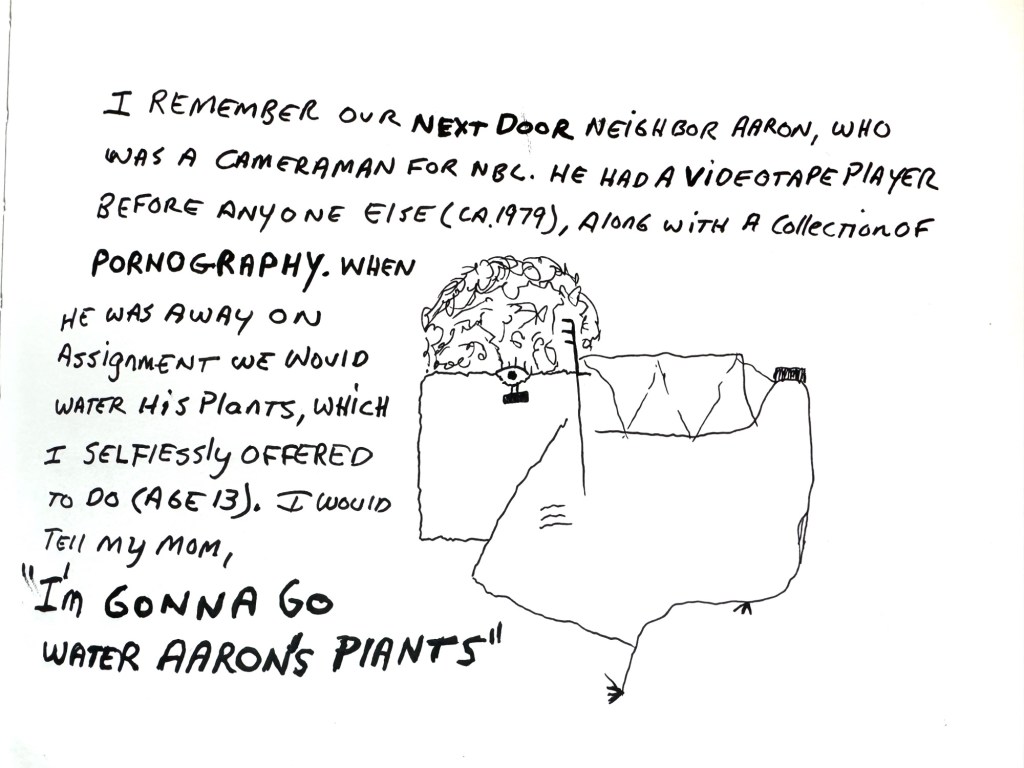 I REMEMBER OUR NEXT DOOR NEIGHBOR AARON, WHO
WAS A CAMERAMAN FOR NBC. HE HAD A VIDEOTAPE PLAYER
BEFORE ANYONE ELSE (CA. 1979), ALONG WITH A COLLECTION OF
PORNOGRAPHY. WHEN
HE WAS AWAY ON
ASSIGNMENT WE WOULD
WATER HIS PLANTS, WHICH
I SELFLESSLY OFFERED
TO DO (AGE 13). I WOULD
TELL MY MOM,
"I'M GONNA GO
WATER AARON'S PLANTS"